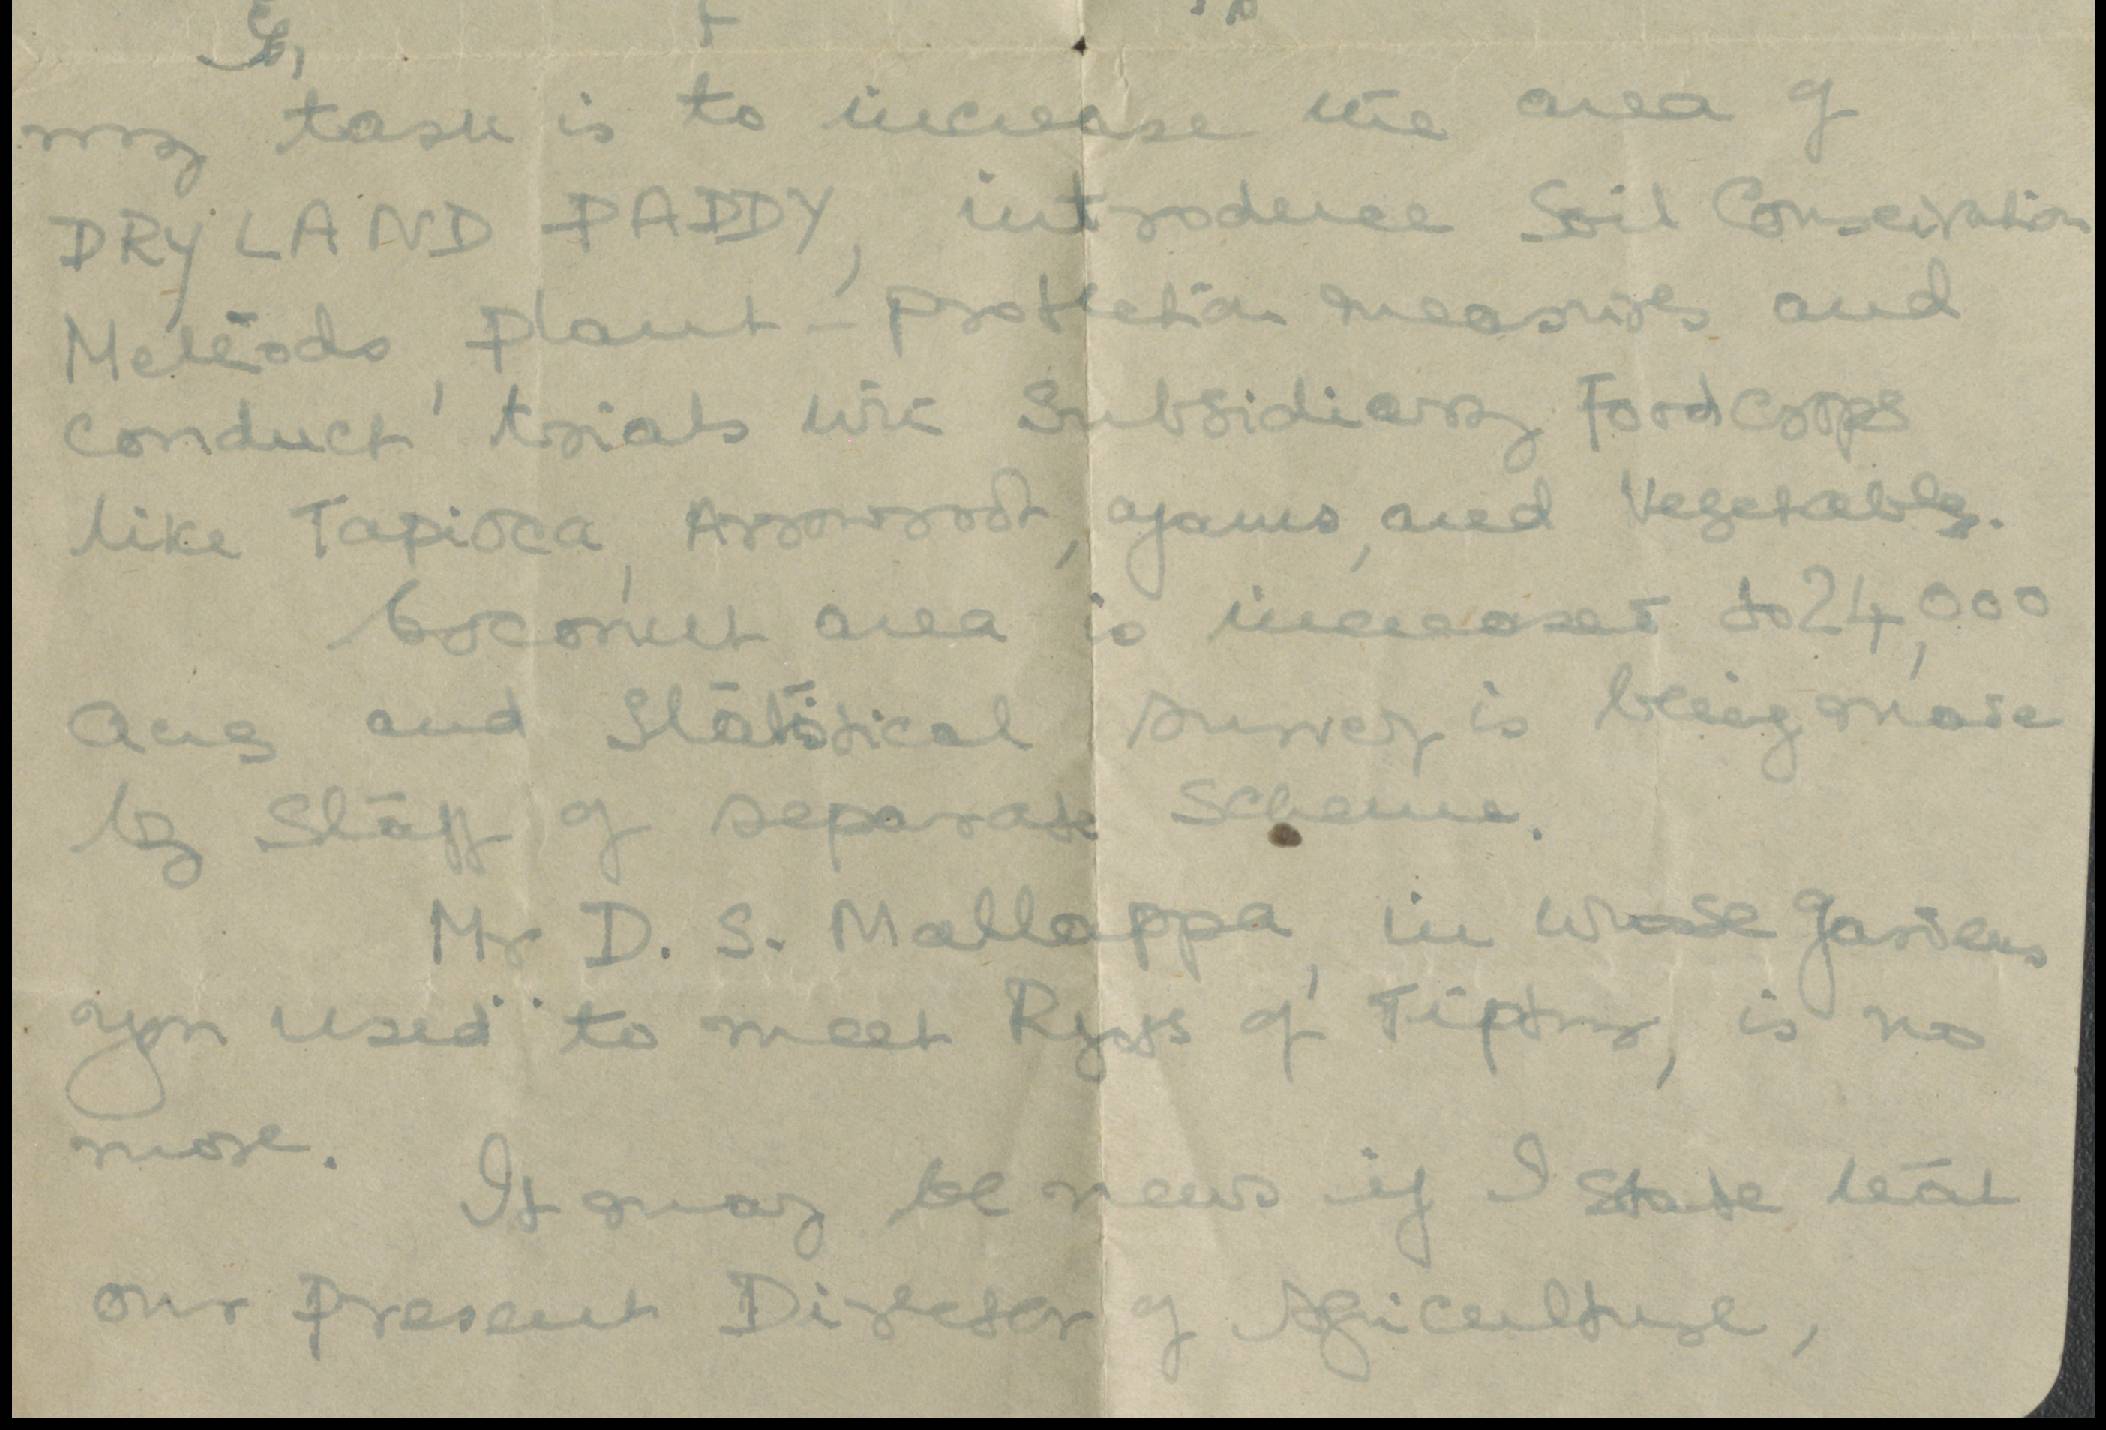 my task is to increase the area of
DRY LAND PADDY, introduce Soil Conservation
Methods, plant-protection measures and
conduct trials with Subsidiary Foodcrops
like Tapioca, Arrowroot, yams, and Vegetables.
Cocoanut area is increased to 24,000
Acres and Statistical survey is being made
by Staff of separate Scheme.
Mr D. S. Mallappa, in whose gardens
you used to meet Ryots of Tiptur, is no
more.
It may be news if I state that
our present Director of Agriculture,